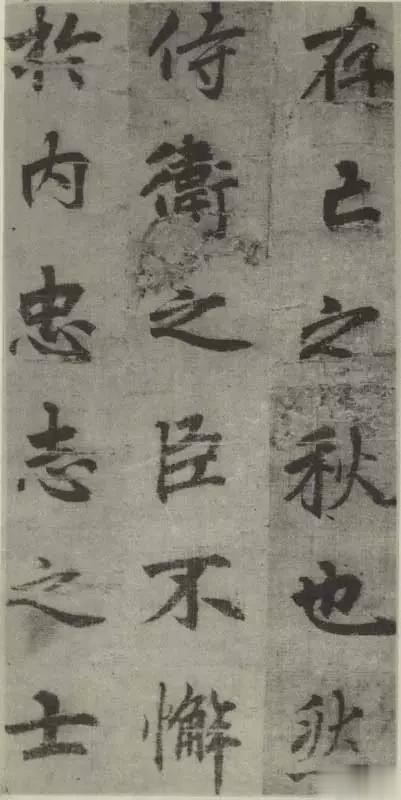 存亡之秋也然
侍衛之臣不懈
於內忠志之士